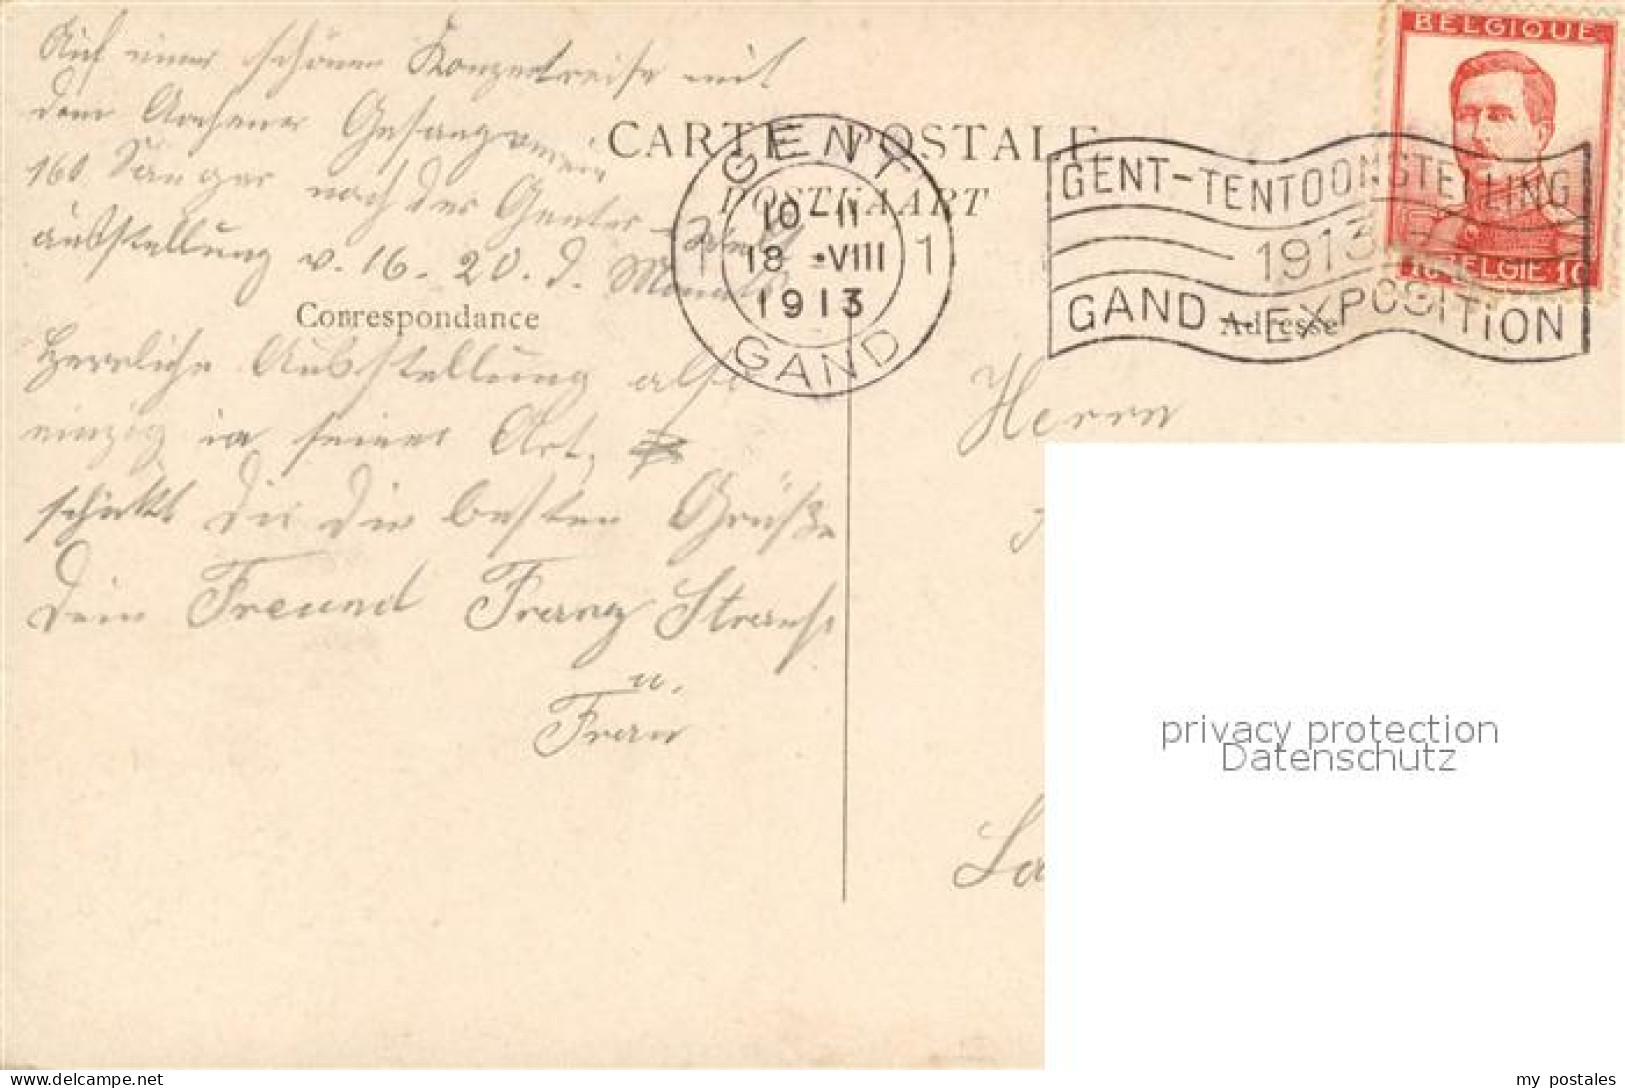 Auf einer schönen Konzertreise mit
dem Aachener Gesangverein
160 Sänger nach der Genter-Welt
ausstellung v. 16-20. d. Monats
Herrliche Ausstellung also
einzig in seiner Art,
schickt Dir die besten Grüße
Dein Freund Franz
u.
Frau
CARTE POSTALE
POSTKAART
Correspondance
Adresse
GENT
10-11
18 •VIII
1913
1 1
GAND
GENT-TENTOONSTELLING
1913
GAND-EXPOSITION
BELGIQUE
10 BELGIE 10
Herrn
privacy protection
Datenschutz
my postales